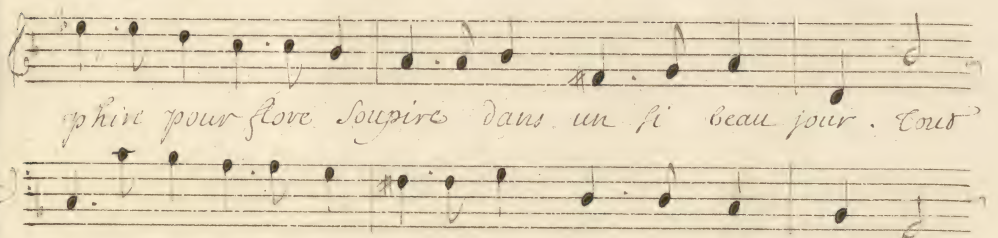 phire pour flore Soupire dans un si beau jour. tout